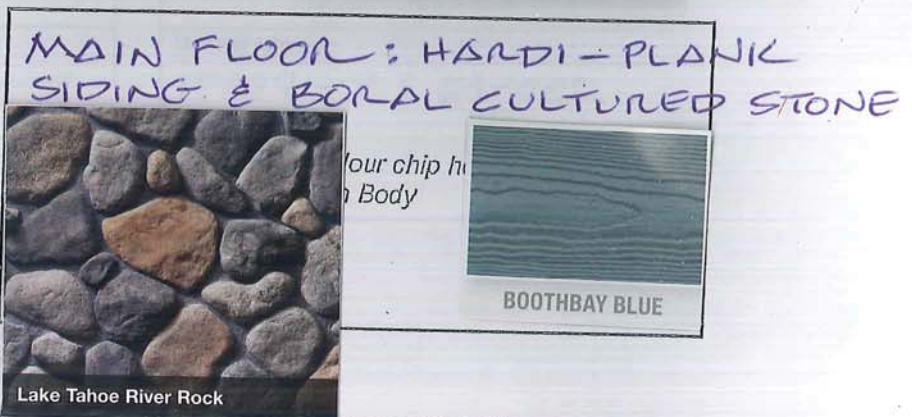 MAIN FLOOR: HARDI-PLANK
SIDING & BORAL CULTURED STONE
lour chip
Body
BOOTHBAY BLUE
Lake Tahoe River Rock